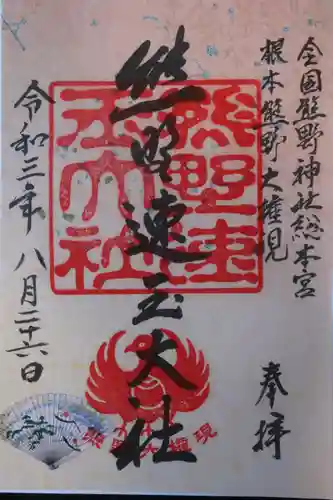 全国熊野神社総本宮
根本熊野大権現
奉拝
熊野速玉大社
熊野速
玉大社
令和三年八月二十六日